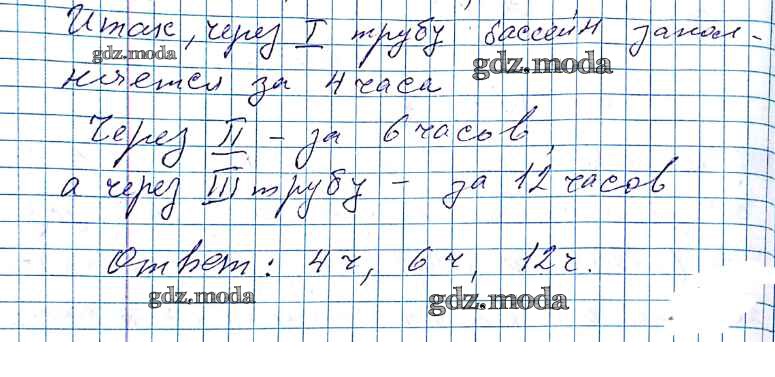 Итак, через I трубу бассейн запол-
gdz.moda
gdz.moda
няется за 4 часа
Через II - за 6 часов,
а через III трубу - за 12 часов
Ответ: 4 ч, 6 ч, 12 ч.
gdz.moda
gdz.moda